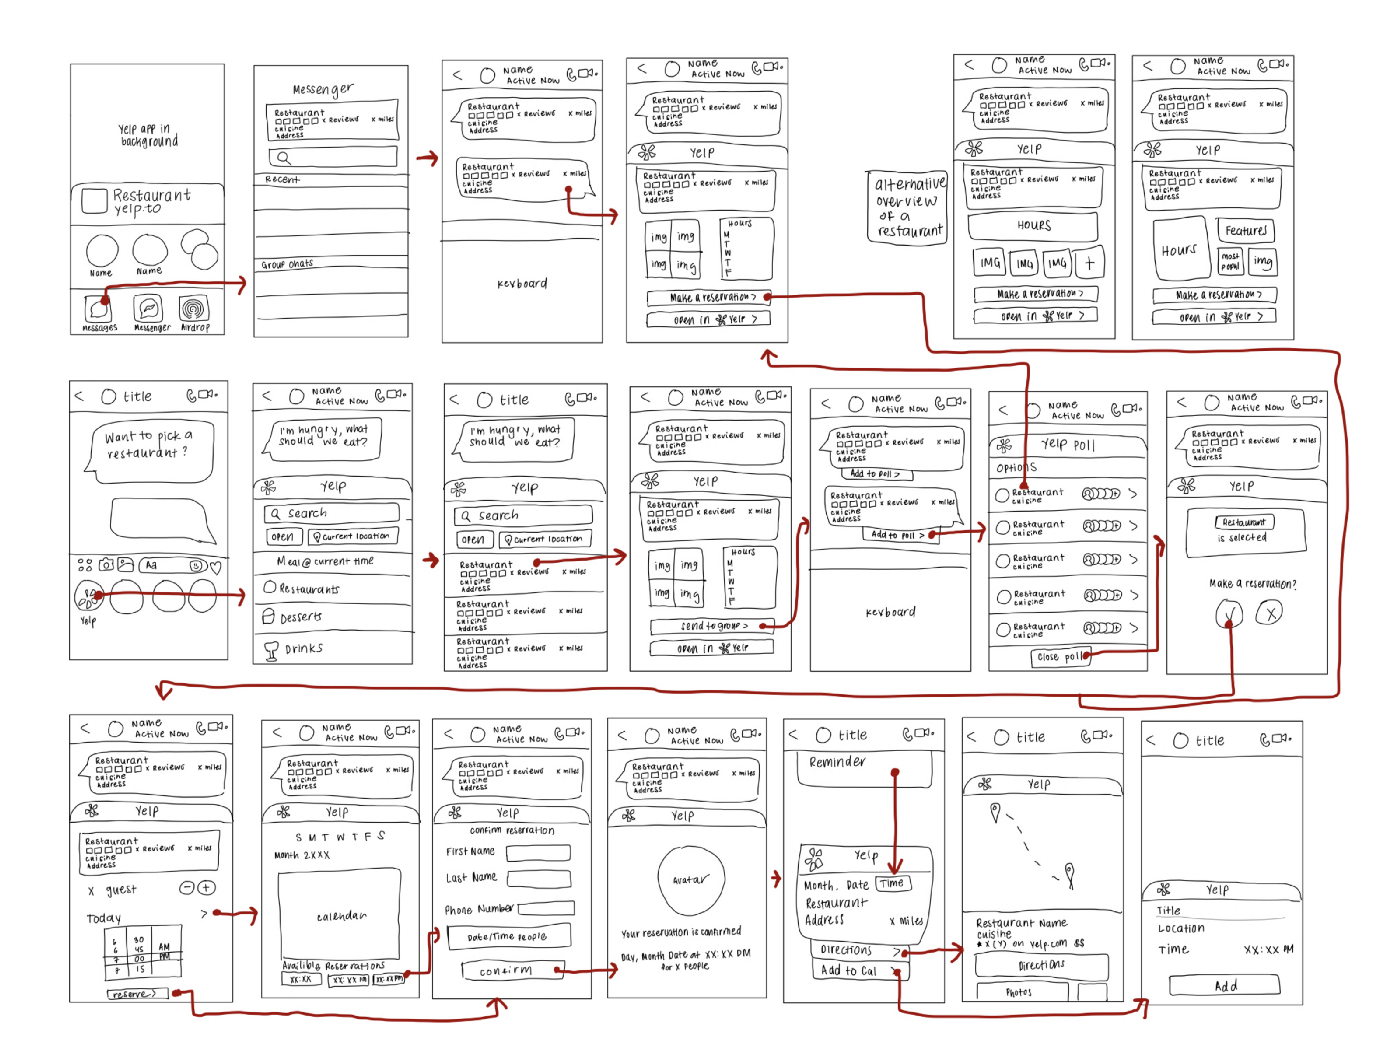 Yelp app in
background
Restaurant
yelp.to
Name
Name
Messages
Messenger
Airdrop
Messenger
Restaurant
x Reviews x miles
cuisine
Address
Recent
Group chats
Name
Active Now
Restaurant
x Reviews x miles
cuisine
Address
Restaurant
x Reviews x miles
cuisine
Address
keyboard
Name
Active Now
Restaurant
x Reviews x miles
cuisine
Address
Yelp
Restaurant
x Reviews x miles
cuisine
Address
img img
img img
Hours
M
T
W
T
F
Make a reservation >
open in Yelp >
alternative
overview
of a
restaurant
Name
Active Now
Restaurant
x Reviews x miles
cuisine
Address
Yelp
Restaurant
x Reviews x miles
cuisine
Address
HOURS
IMG IMG IMG +
Make a reservation >
open in Yelp >
Name
Active Now
Restaurant
x Reviews x miles
cuisine
Address
Yelp
Restaurant
x Reviews x miles
cuisine
Address
Hours
Features
most
popul
img
Make a reservation >
open in Yelp >
title
Want to pick a
restaurant?
Aa
Yelp
Name
Active Now
I'm hungry, what
should we eat?
Yelp
Search
open
current location
Meal @ current time
Restaurants
Desserts
Drinks
title
I'm hungry, what
should we eat?
Yelp
Search
open
current location
Restaurant
x Reviews x miles
cuisine
Address
Restaurant
x Reviews x miles
cuisine
Address
Restaurant
x Reviews x miles
Address
Name
Active Now
Restaurant
x Reviews x miles
cuisine
Address
Yelp
Restaurant
x Reviews x miles
cuisine
Address
img img
img img
Hours
M
T
W
T
F
send to group >
open in Yelp
Name
Active Now
Restaurant
x Reviews x miles
cuisine
Address
Add to Poll >
Restaurant
x Reviews x miles
cuisine
Address
Add to poll >
keyboard
Name
Active Now
Yelp Poll
Options
Restaurant
cuisine
Restaurant
cuisine
Restaurant
cuisine
Restaurant
cuisine
Restaurant
cuisine
Close poll
Name
Active Now
Restaurant
x Reviews x miles
cuisine
Address
Yelp
Restaurant
is selected
Make a reservation?
X
Name
Active Now
Restaurant
x Reviews x miles
cuisine
Address
Yelp
Restaurant
x Reviews x miles
cuisine
Address
x guest - +
Today >
5 30
6 45 AM
7 00 PM
15
reserve >
Name
Active Now
Restaurant
x Reviews x miles
cuisine
Address
Yelp
S M T W T F S
Month 2XXX
calendar
Availible Reservations
XX:XX XX:XX PM XX:XX PM
Name
Active Now
Restaurant
x Reviews x miles
cuisine
Address
Yelp
confirm reservation
First Name
Last Name
Phone Number
Date/Time People
confirm
Name
Active Now
Restaurant
x Reviews x miles
cuisine
Address
Yelp
Avatar
Your reservation is confirmed
Day, Month Date at XX:XX PM
for X people
title
Reminder
Yelp
Month. Date Time
Restaurant
Address x miles
Directions >
Add to Cal >
title
Yelp
Restaurant Name
cuisine
* X (Y) on yelp.com $$
Directions
Photos
title
Yelp
Title
Location
Time XX:XX PM
Add